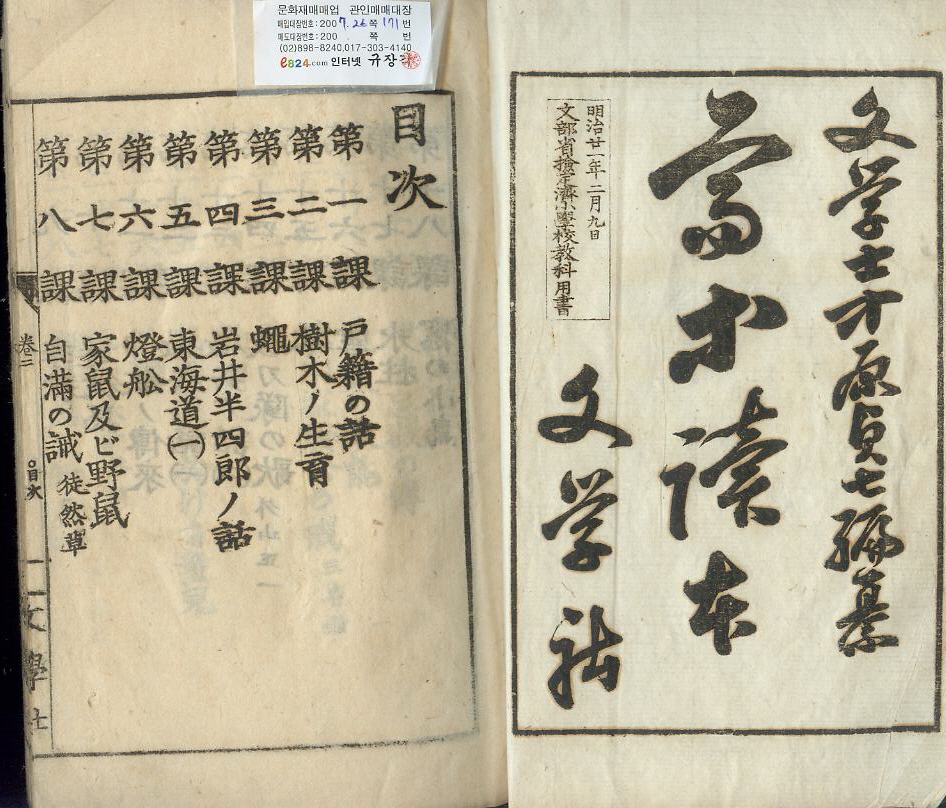 문화재매매업 관인매매대장
매입대장번호:2007.26 쪽 171번
매도대장번호:200 쪽 번
(02)898-8240,017-303-4140
e824.com 인터넷 규장각
文学士中原貞七編纂
高等読本
明治廿一年二月九日
文部省檢定濟小學校教科用書
文学社
目次
第一課 戸籍の話
第二課 樹木ノ生育
第三課 蠅
第四課 岩井半四郎ノ話
第五課 東海道(一)
第六課 燈船
第七課 家鼠及ビ野鼠
第八課 自滿の誡 徒然草
目次
文學社